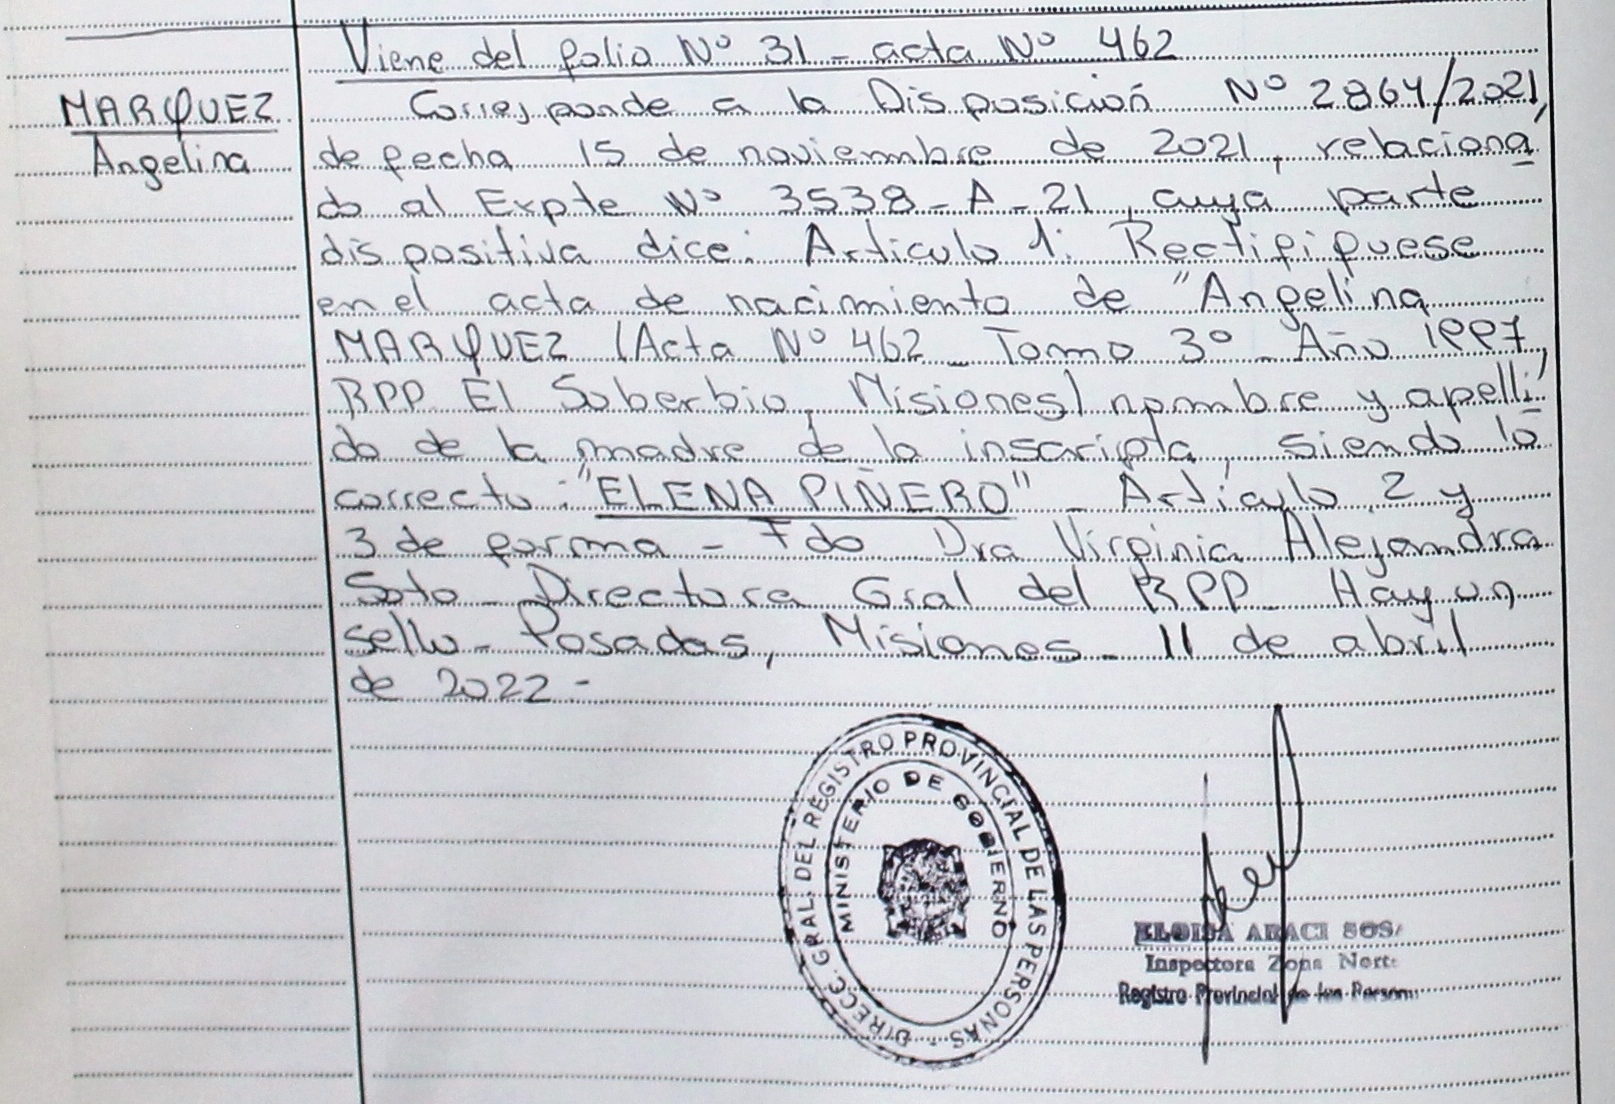 Viene del folio Nº 31 - acta Nº 462
MARQUEZ
Angelina
Corresponde a la Disposición Nº 2864/2021,
de fecha 15 de noviembre de 2021, relaciona
do al Expte Nº 3538-A-21, cuya parte
dispositiva dice: Articulo 1: Rectifiquese
en el acta de nacimiento de "Angelina
MARQUEZ (Acta Nº 462 - Tomo 3º - Año 1997,
RPP El Soberbio, Misiones) nombre y apelli
do de la madre de la inscripta, siendo lo
correcto: "ELENA PIÑERO" - Artículo 2 y
3 de forma - Fdo Dra Virginia Alejandra
Soto - Directora Gral del RPP - Hay un
sello - Posadas, Misiones - 11 de abril
de 2022 -
DIRECC. GRAL. DEL REGISTRO PROVINCIAL DE LAS PERSONAS -
MINISTERIO DE GOBIERNO
ELOISA ARACI SOSA
Inspectora Zona Norte
Registro Provincial de las Personas